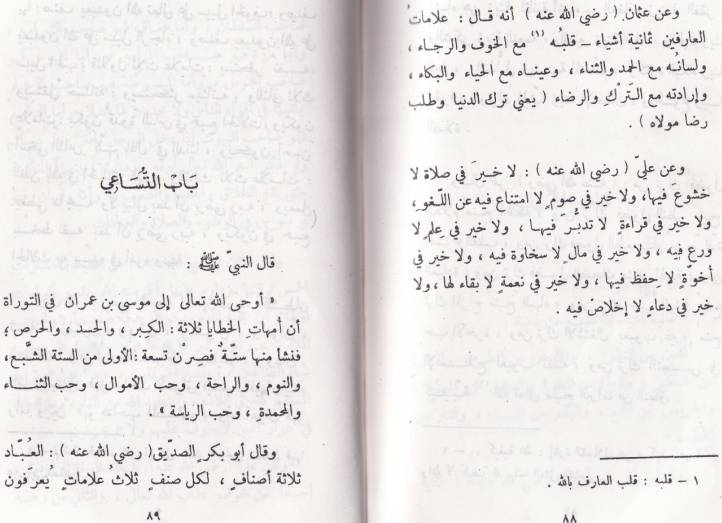 وعن عثمان ( رضي الله عنه ) أنه قال : علامات
العارفين ثمانية أشياء – قلبُه (١) مع الخوف والرجاء ،
ولسانُه مع الحمد والثناء ، وعيناه مع الحياء والبكاء ،
وإرادته مع التَرْكِ والرضاء ( يعني ترك الدنيا وطلب
رضا مولاه ) .
وعن عليّ ( رضي الله عنه ) : لا خيرَ في صلاة لا
خشوعَ فيها، ولا خير في صومٍ لا امتناع فيه عن اللّغوِ،
ولا خير في قراءةٍ لا تدبُّرَ فيها ، ولا خير في عِلمٍ لا
ورع فيه ، ولا خير في مالٍ لا سخاوة فيه ، ولا خير في
أخوّةٍ لا حفظ فيها ، ولا خير في نعمةٍ لا بقاء لها ، ولا
خير في دعاءٍ لا إخلاصَ فيه .
١ – قلبه : قلب العارف بالله .
٨٨
بَابُ التُّسَاعِي
قال النبيّ ﷺ :
« أوحى الله تعالى إلى موسى بن عمران في التوراة
أن أمهاتِ الخطايا ثلاثة : الكِبر ، والحسد ، والحرص ؛
فنشأ منها ستّةٌ فصِرْن تسعة : الأولى من الستة الشَّبع،
والنوم ، والراحة ، وحب الأموال ، وحب الثناء
والمحمدةِ ، وحب الرياسة » .
وقال أبو بكرٍ الصدّيق ( رضي الله عنه ) : العُبّاد
ثلاثة أصنافٍ ، لكل صنفٍ ثلاثُ علاماتٍ يُعرَفون
٨٩